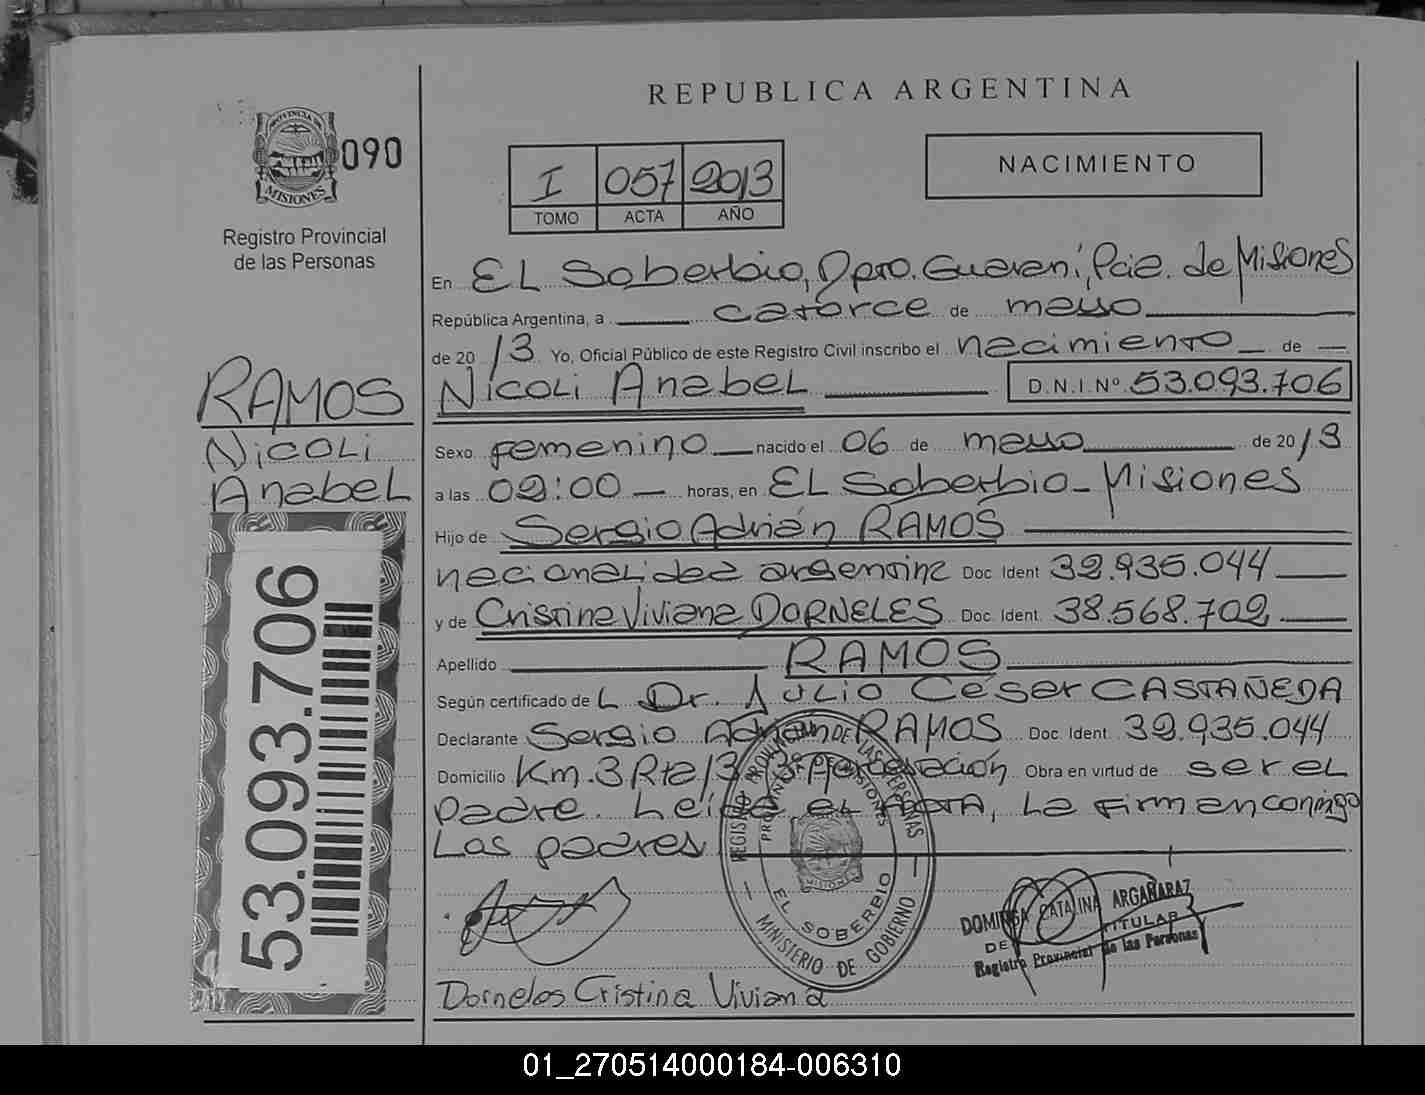 REPUBLICA ARGENTINA
PROVINCIA DE
MISIONES
090
Registro Provincial
de las Personas
I 057 2013
TOMO ACTA AÑO
NACIMIENTO
En EL Soberbio, Dpto. Guaraní, Pcia. de Misiones
República Argentina, a catorce de mayo
de 20 13 Yo, Oficial Público de este Registro Civil inscribo el nacimiento de
Nicoli Anabel D.N.I. Nº 53.093.706
RAMOS
Nicoli
Anabel
Sexo femenino nacido el 06 de mayo de 20 13
a las 02:00 horas, en EL Soberbio - Misiones
Hijo de Sergio Adrián RAMOS
nacionalidad argentina Doc Ident 32.935.044
y de Cristina Viviana DORNELES Doc Ident. 38.568.702
Apellido RAMOS
Según certificado de L Dr. Julio César CASTAÑEDA
Declarante Sergio Adrián RAMOS Doc Ident. 32.935.044
Domicilio Km. 3 Rta 13 Obra en virtud de ser el
padre. Leída el Acta, La Firman conmigo
Los padres
53.093.706
REGISTRO PROVINCIAL DE LAS PERSONAS
PROVINCIA DE MISIONES
EL SOBERBIO
MINISTERIO DE GOBIERNO
DOMINGA CATALINA ARGAÑARAZ
TITULAR
Registro Provincial de las Personas
Dornelos Cristina Viviana
01_270514000184-006310